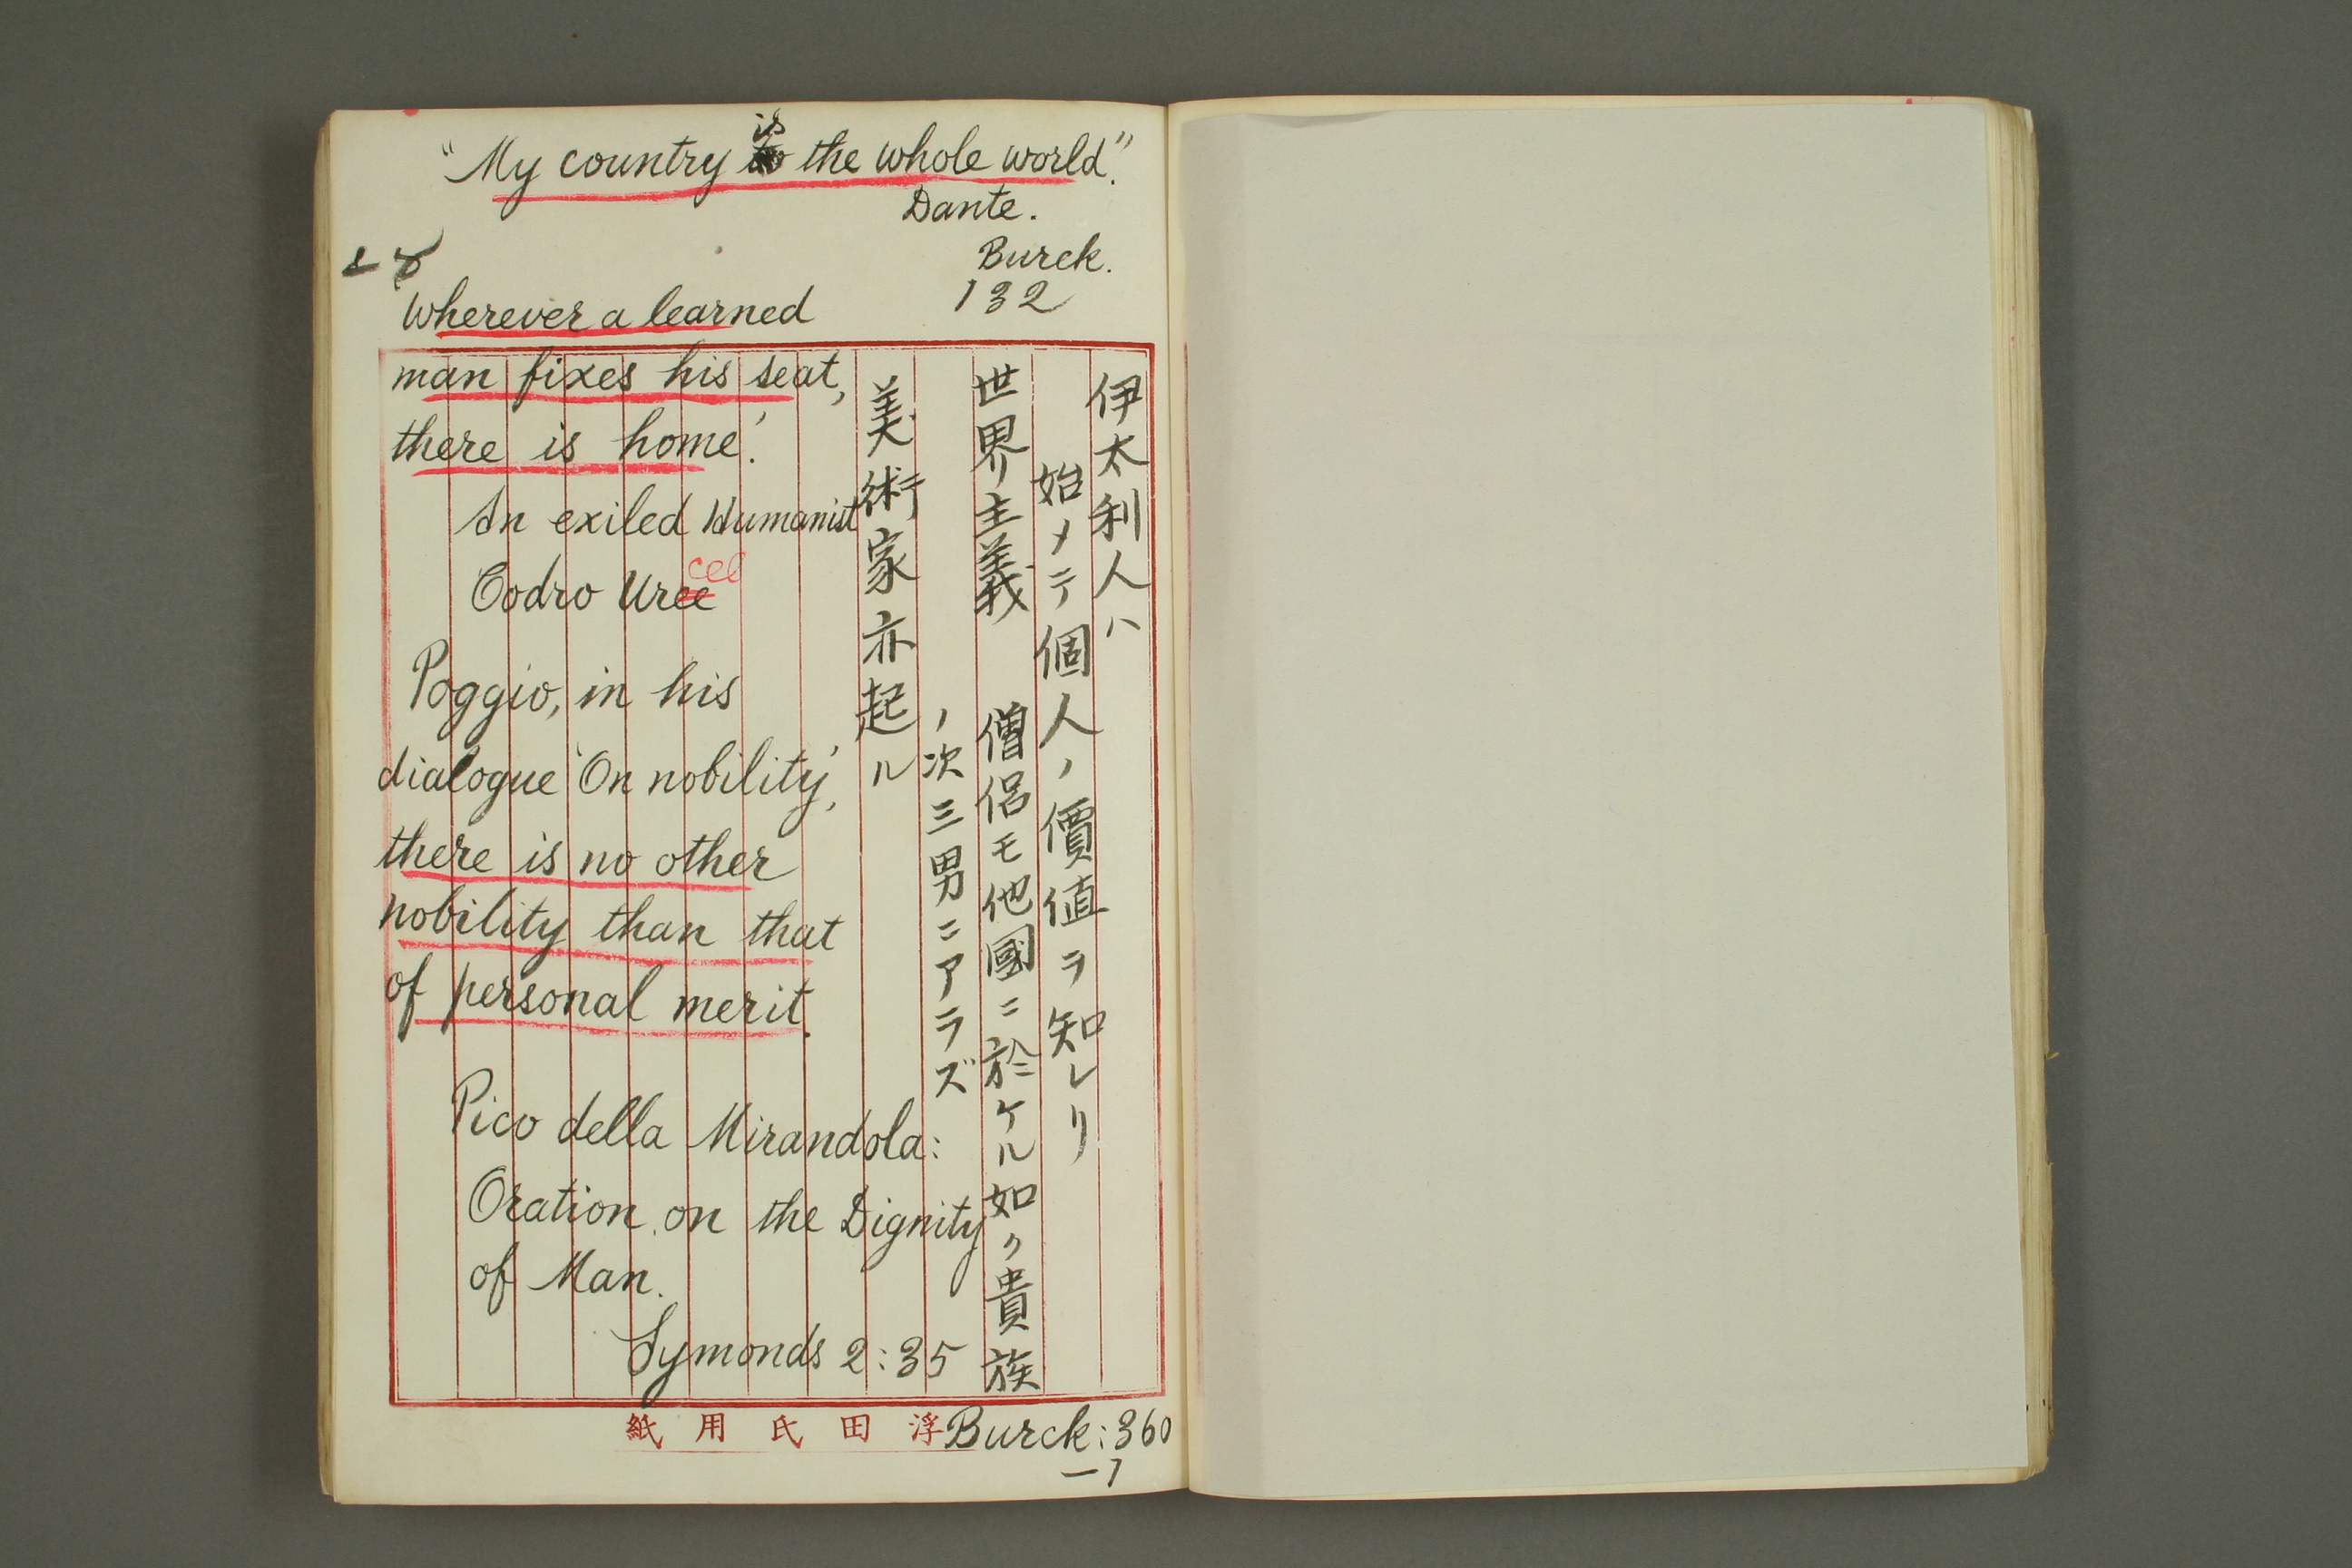 "My country is the whole world."
Dante.
Burck.
132
Wherever a learned
man fixes his seat,
there is home.'
An exiled Humanist
Codro Urceo
Poggio, in his
dialogue 'On nobility',
there is no other
nobility than that
of personal merit.
Pico della Mirandola:
Oration on the Dignity
of Man.
Symonds 2:35
伊太利人ハ
始メテ個人ノ價値ヲ知レリ
世界主義 僧侶モ他國ニ於ケル如ク貴族
ノ次三男ニアラズ
美術家亦起ル
Burck: 360
—1
紙用氏田浮